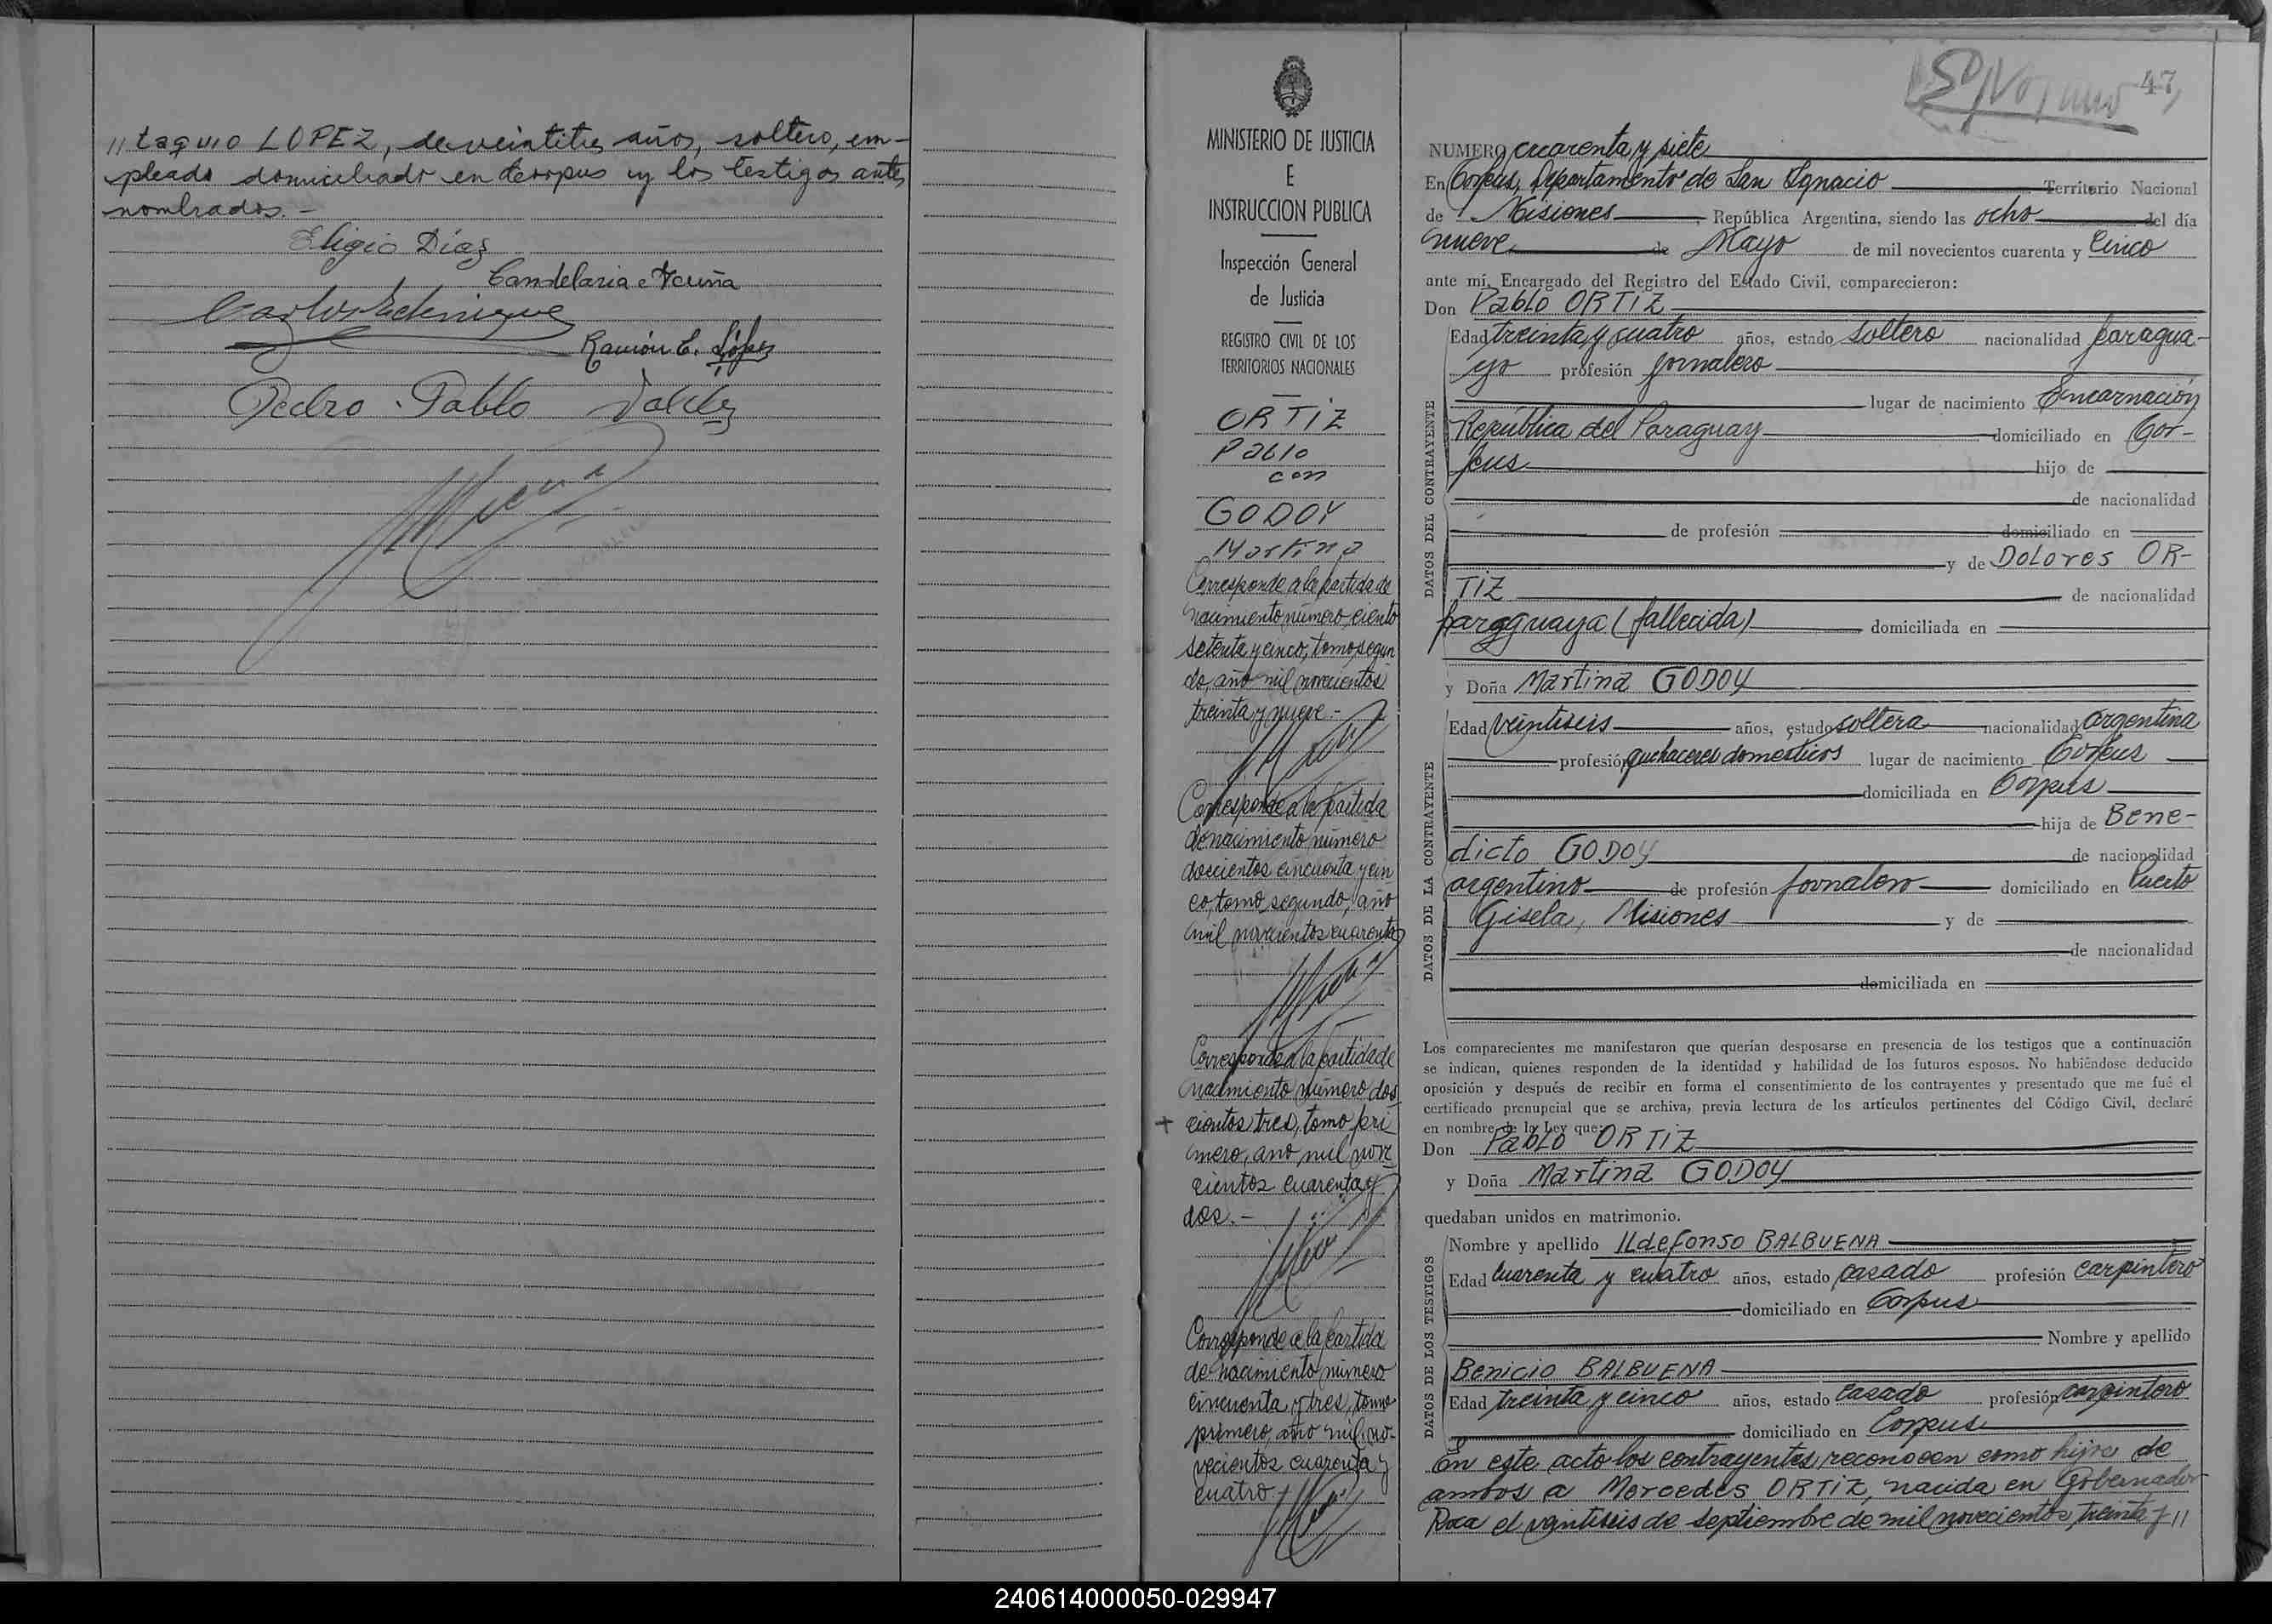 // taquio LOPEZ, de veintitres años, soltero, em-
pleado domiciliado en Corpus y los testigos antes
nombrados.-
Eligio Díaz
Candelaria Acuña
Carlos Echenique
Ramón E. López
Pedro Pablo Valdez
MINISTERIO DE JUSTICIA
E
INSTRUCCION PUBLICA
Inspección General
de Justicia
REGISTRO CIVIL DE LOS
TERRITORIOS NACIONALES
ORTIZ
Pablo
con
GODOY
Martina
Corresponde a la partida de
nacimiento número ciento
setenta y cinco, tomo segun
do, año mil novecientos
treinta y nueve.-
Corresponde a la partida
de nacimiento número
doscientos cincuenta y cin
co, tomo segundo, año
mil novecientos cuarenta
Corresponde a la partida de
nacimiento número dos
+ cientos tres, tomo pri
mero, año mil nove
cientos cuarenta y
dos.-
Corresponde a la partida
de nacimiento número
cincuenta y tres, tomo
primero, año mil no-
vecientos cuarenta y
cuatro
47
NUMERO cuarenta y siete
En Corpus, Departamento de San Ignacio Territorio Nacional
de Misiones, República Argentina, siendo las ocho del día
nueve de Mayo de mil novecientos cuarenta y Cinco
ante mí, Encargado del Registro del Estado Civil, comparecieron:
Don Pablo ORTIZ
DATOS DEL CONTRAYENTE
Edad treinta y cuatro años, estado soltero nacionalidad paragua-
yo profesión jornalero
lugar de nacimiento Encarnación
República del Paraguay domiciliado en Cor-
pus hijo de
de nacionalidad
de profesión domiciliado en
y de DOLORES OR-
TIZ de nacionalidad
paraguaya (fallecida) domiciliada en
y Doña Martina GODOY
DATOS DE LA CONTRAYENTE
Edad veintiseis años, estado soltera nacionalidad argentina
profesión quehaceres domesticos lugar de nacimiento Corpus
domiciliada en Corpus
hija de Bene-
dicto GODOY de nacionalidad
argentino de profesión jornalero domiciliado en Puerto
Gisela, Misiones y de
de nacionalidad
domiciliada en
Los comparecientes me manifestaron que querían desposarse en presencia de los testigos que a continuación
se indican, quienes responden de la identidad y habilidad de los futuros esposos. No habiéndose deducido
oposición y después de recibir en forma el consentimiento de los contrayentes y presentado que me fué el
certificado prenupcial que se archiva, previa lectura de los artículos pertinentes del Código Civil, declaré
en nombre de la Ley que:
Don Pablo ORTIZ
y Doña Martina GODOY
quedaban unidos en matrimonio.
DATOS DE LOS TESTIGOS
Nombre y apellido ILdefonso BALBUENA
Edad cuarenta y cuatro años, estado casado profesión carpintero
domiciliado en Corpus
Nombre y apellido
Benicio BALBUENA
Edad treinta y cinco años, estado casado profesión carpintero
domiciliado en Corpus
En este acto los contrayentes reconocen como hijos de
ambos a Mercedes ORTIZ, nacida en Gobernador
Roca el veintiseis de septiembre de mil novecientos treinta y //
240614000050-029947